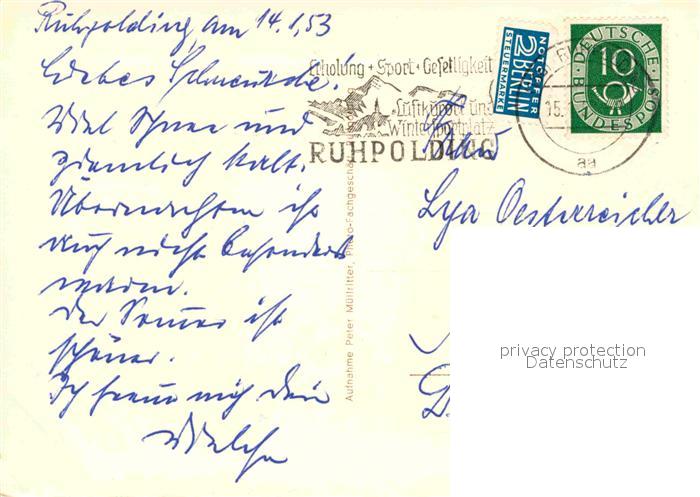 Ruhpolding, am 14.1.53
Liebes
Viel Schnee und
ziemlich kalt.
Übernachten ist
auch nicht besonders
warm.
Der Sommer ist
schöner.
Ich freue mich Dein
Erholung + Sport + Geselligkeit
Luftkurort und
Wintersportplatz
RUHPOLDING
NOTOPFER
2 BERLIN
STEUERMARKE
DEUTSCHE
10
BUNDESPOST
15.
aa
Frau
Lya Oesterreicher
Aufnahme Peter Müllritter, Photo-Fachgeschä
privacy protection
Datenschutz